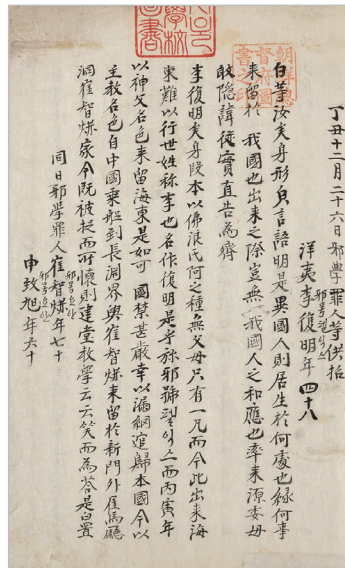 丁丑十二月二十六日邪學罪人等供招
洋夷李復明年四十八
白等汝矣身形貞言語明是異國人則居生於何處也緣何事
來留於 我國也出來之際豈無我國人之和應也率來源委毋
敢隱諱從實直告爲齊
李復明矣身段本以佛浪氏何之種無父母只有一兄而今此出來海
東難以行世姓称李也名作復明是乎旀邪號 스 而丙寅年
以神父名色來留海東是如可 國禁甚嚴幸以漏網逭歸本國今以
主教名色自中國乘船到長淵界與崔智爀來留於新門外雇馬廳
洞崔智爀家今旣被捉而所懷則建堂教學云云笑而爲答是白置
同日邪學罪人崔智爀年七十
申致旭年六十